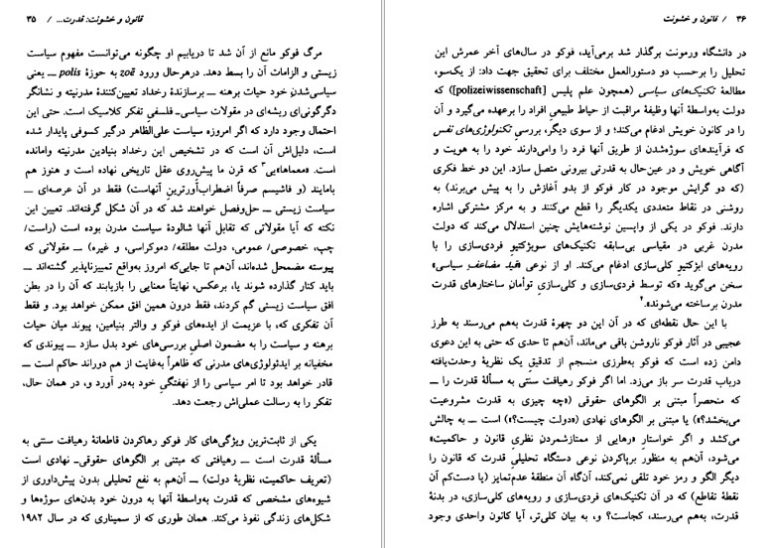 قانون و خشونت: قدرت... / ۳۵
مرگ فوکو مانع از آن شد تا دریابیم او چگونه می‌توانست مفهوم سیاست
زیستی و الزامات آن را بسط دهد. درهرحال ورود zoē به حوزهٔ polis ــ یعنی
سیاسی‌شدنِ خود حیات برهنه ــ برسازندهٔ رخداد تعیین‌کنندهٔ مدرنیته و نشانگر
دگرگونی‌ای ریشه‌ای در مقولات سیاسی‌ـ فلسفیِ تفکر کلاسیک است. حتی این
احتمال وجود دارد که اگر امروزه سیاست علی‌الظاهر درگیر کسوفی پایدار شده
است، دلیل‌اش آن است که در تشخیص این رخداد بنیادین مدرنیته وامانده
است. «معماها»یی۳ که قرن ما پیش‌روی عقل تاریخی نهاده است و هنوز هم
بامایند (و فاشیسم صرفاً اضطراب‌آورترینِ آنهاست) فقط در آن عرصه‌ای ــ
سیاست زیستی ــ حل‌وفصل خواهند شد که در آن شکل گرفته‌اند. تعیین این
نکته که آیا مقولاتی که تقابل آنها شالودهٔ سیاست مدرن بوده است (راست/
چپ، خصوصی/ عمومی، دولت مطلقه/ دموکراسی، و غیره) ــ مقولاتی که
پیوسته مضمحل شده‌اند، آن‌هم تا جایی‌که امروز به‌واقع تمییزناپذیر گشته‌اند ــ
باید کنار گذارده شوند یا، برعکس، نهایتاً معنایی را بازیابند که آن را در بطن
افق سیاست زیستی گم کردند، فقط درون همین افق ممکن خواهد بود. و فقط
آن تفکری که، با عزیمت از ایده‌های فوکو و والتر بنیامین، پیوند میان حیات
برهنه و سیاست را به مضمون اصلیِ بررسی‌های خود بدل سازد ــ پیوندی که
مخفیانه بر ایدئولوژی‌های مدرنی که ظاهراً به‌غایت از هم دوراند حاکم است ــ
قادر خواهد بود تا امر سیاسی را از نهفتگیِ خود به‌در آورد و، در همان حال،
تفکر را به رسالت عملی‌اش رجعت دهد.
یکی از ثابت‌ترین ویژگی‌های کار فوکو رهاکردن قاطعانهٔ رهیافت سنتی به
مسألهٔ قدرت است ــ رهیافتی که مبتنی بر الگوهای حقوقی‌ـ نهادی است
(تعریف حاکمیت، نظریهٔ دولت) ــ آن‌هم به نفع تحلیلی بدون پیش‌داوری از
شیوه‌های مشخصی که قدرت به‌واسطهٔ آنها به درون خود بدن‌های سوژه‌ها و
شکل‌های زندگی نفوذ می‌کند. همان طوری که از سمیناری که در سال ۱۹۸۲
۳۶ / قانون و خشونت
در دانشگاه ورمونت برگذار شد برمی‌آید، فوکو در سال‌های آخر عمرش این
تحلیل را برحسب دو دستورالعمل مختلف برای تحقیق جهت داد: از یک‌سو،
مطالعهٔ تکنیک‌های سیاسی (همچون علم پلیس [polizeiwissenschaft]) که
دولت به‌واسطهٔ آنها وظیفهٔ مراقبت از حیاط طبیعیِ افراد را برعهده می‌گیرد و آن
را در کانون خویش ادغام می‌کند؛ و از سوی دیگر، بررسی تکنولوژی‌های نفس
که فرآیندهای سوژه‌شدن از طریق آنها فرد را وامی‌دارند خود را به هویت و
آگاهی خویش و در عین‌حال به قدرتی بیرونی متصل سازد. این دو خط فکری
(که دو گرایش موجود در کار فوکو از بدو آغازش را به پیش می‌برند) به
روشنی در نقاط متعددی یکدیگر را قطع می‌کنند و به مرکز مشترکی اشاره
دارند. فوکو در یکی از واپسین نوشته‌هایش چنین استدلال می‌کند که دولت
مدرن غربی در مقیاسی بی‌سابقه تکنیک‌های سوبژکتیوِ فردی‌سازی را با
رویه‌های ابژکتیوِ کلی‌سازی ادغام می‌کند. او از نوعی «قید مضاعفِ سیاسی»
سخن می‌گوید «که توسط فردی‌سازی و کلی‌سازیِ توأمانِ ساختارهای قدرت
مدرن برساخته می‌شوند».۴
با این حال نقطه‌ای که در آن این دو چهرهٔ قدرت به‌هم می‌رسند به طرز
عجیبی در آثار فوکو ناروشن باقی می‌ماند، آن‌هم تا حدی که حتی به این دعوی
دامن زده است که فوکو به‌طرزی منسجم از تدقیق یک نظریهٔ وحدت‌یافته
درباب قدرت سر باز می‌زد. اما اگر فوکو رهیافت سنتی به مسألهٔ قدرت را ــ
که منحصراً مبتنی بر الگوهای حقوقی («چه چیزی به قدرت مشروعیت
می‌بخشد؟») یا مبتنی بر الگوهای نهادی («دولت چیست؟») است ــ به چالش
می‌کشد و اگر خواستارِ «رهایی از ممتازشمردن نظریِ قانون و حاکمیت»
می‌شود، آن‌هم به منظور برپاکردن نوعی دستگاه تحلیلیِ قدرت که قانون را
دیگر الگو و رمز خود تلقی نمی‌کند، آن‌گاه آن منطقهٔ عدم‌تمایز (یا دست‌کم آن
نقطهٔ تقاطع) که در آن تکنیک‌های فردی‌سازی و رویه‌های کلی‌سازی، در بدنهٔ
قدرت، به‌هم می‌رسند، کجاست؟ و، به بیان کلی‌تر، آیا کانون واحدی وجود